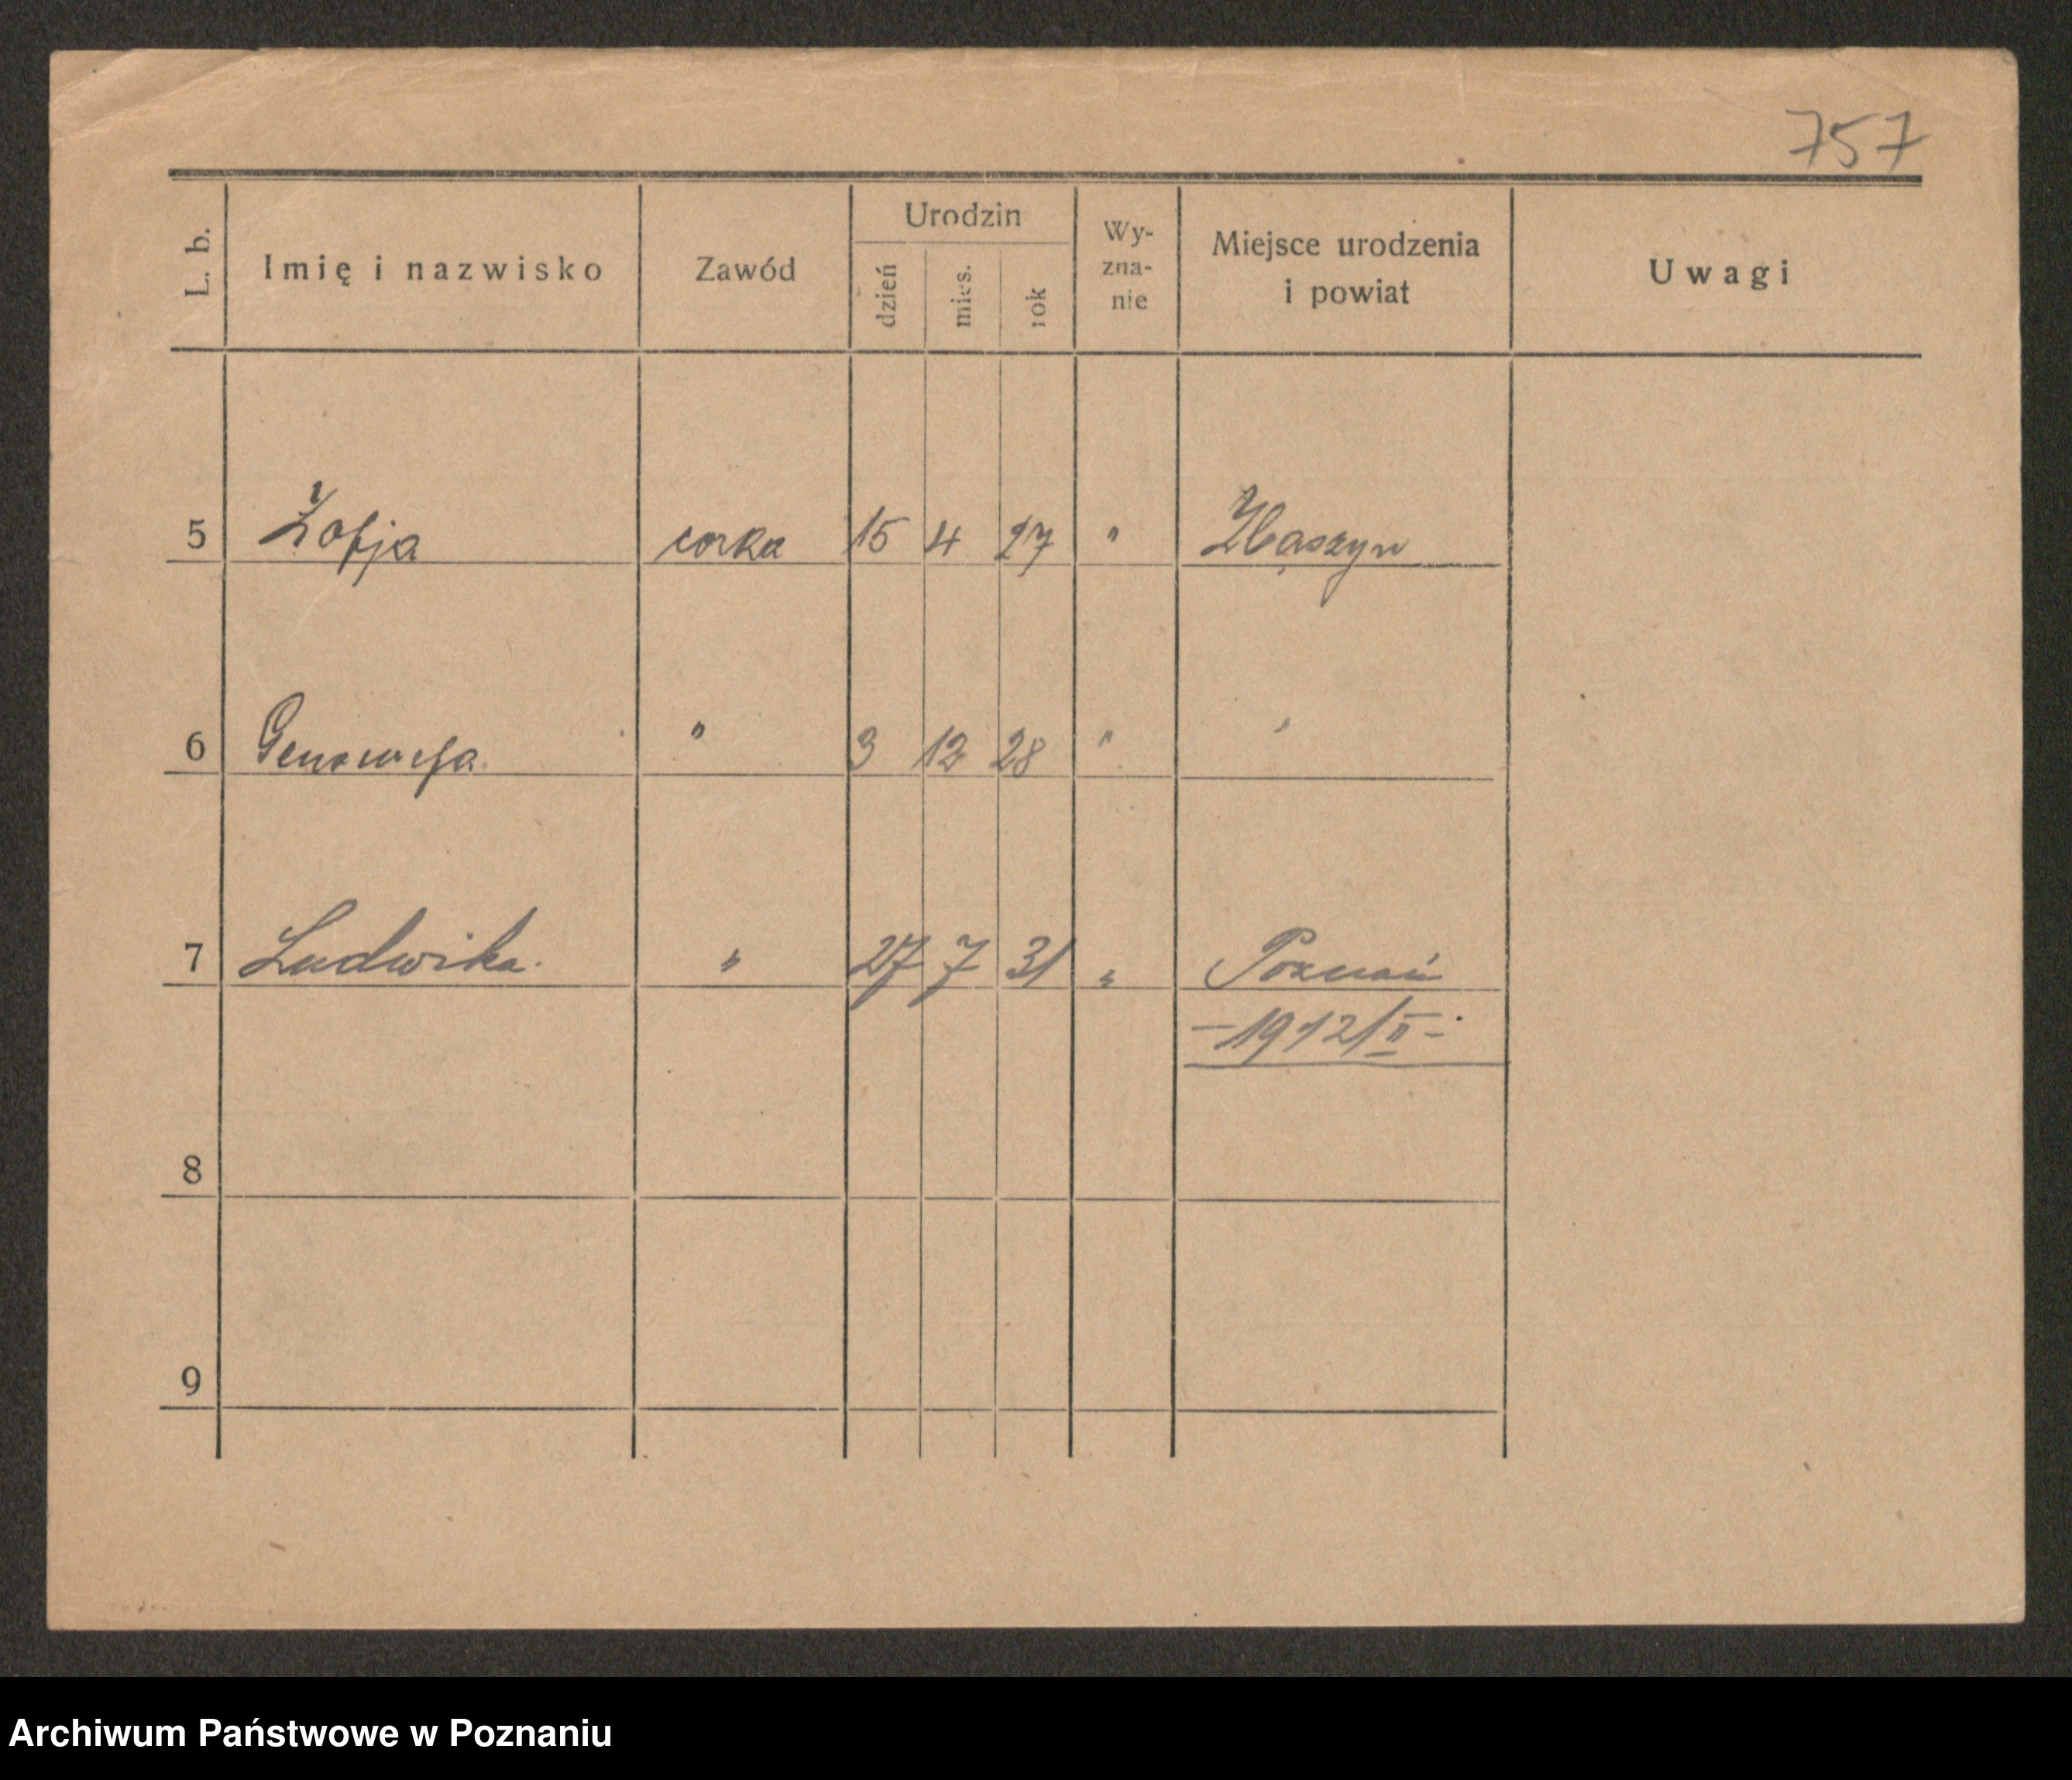 757
L. b. Imię i nazwisko Zawód Urodzin dzień mies. rok Wy-zna-nie Miejsce urodzenia i powiat Uwagi
5 Zofja corka 15 4 27 " Zbąszyn
6 Genowefa " 3 12 28 " "
7 Ludwika. " 27 7 31 " Poznań
-1912/II-
8
9
Archiwum Państwowe w Poznaniu